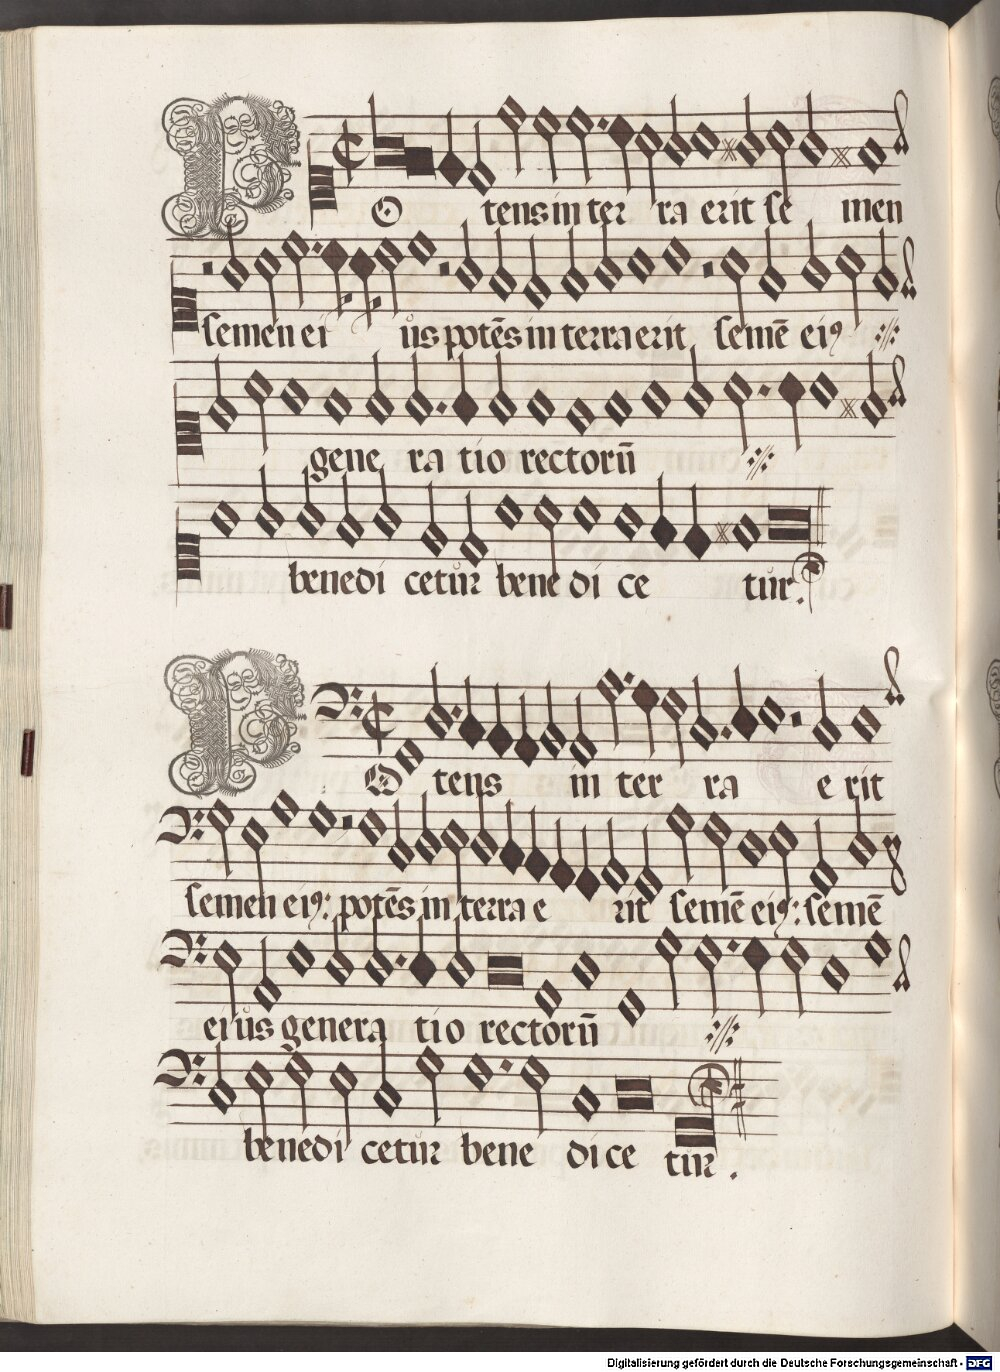 PO tens in ter ra erit se men
semen ei us potēs in terra erit semē ei9 ://:
gene ra tio rectorū ://:
benedi cetur bene di ce tur.
PO tens in ter ra e rit
semen ei9: potēs in terra e rit semē ei9: semē
eius genera tio rectorū ://:
benedi cetur bene di ce tur.
Digitalisierung gefördert durch die Deutsche Forschungsgemeinschaft - DFG